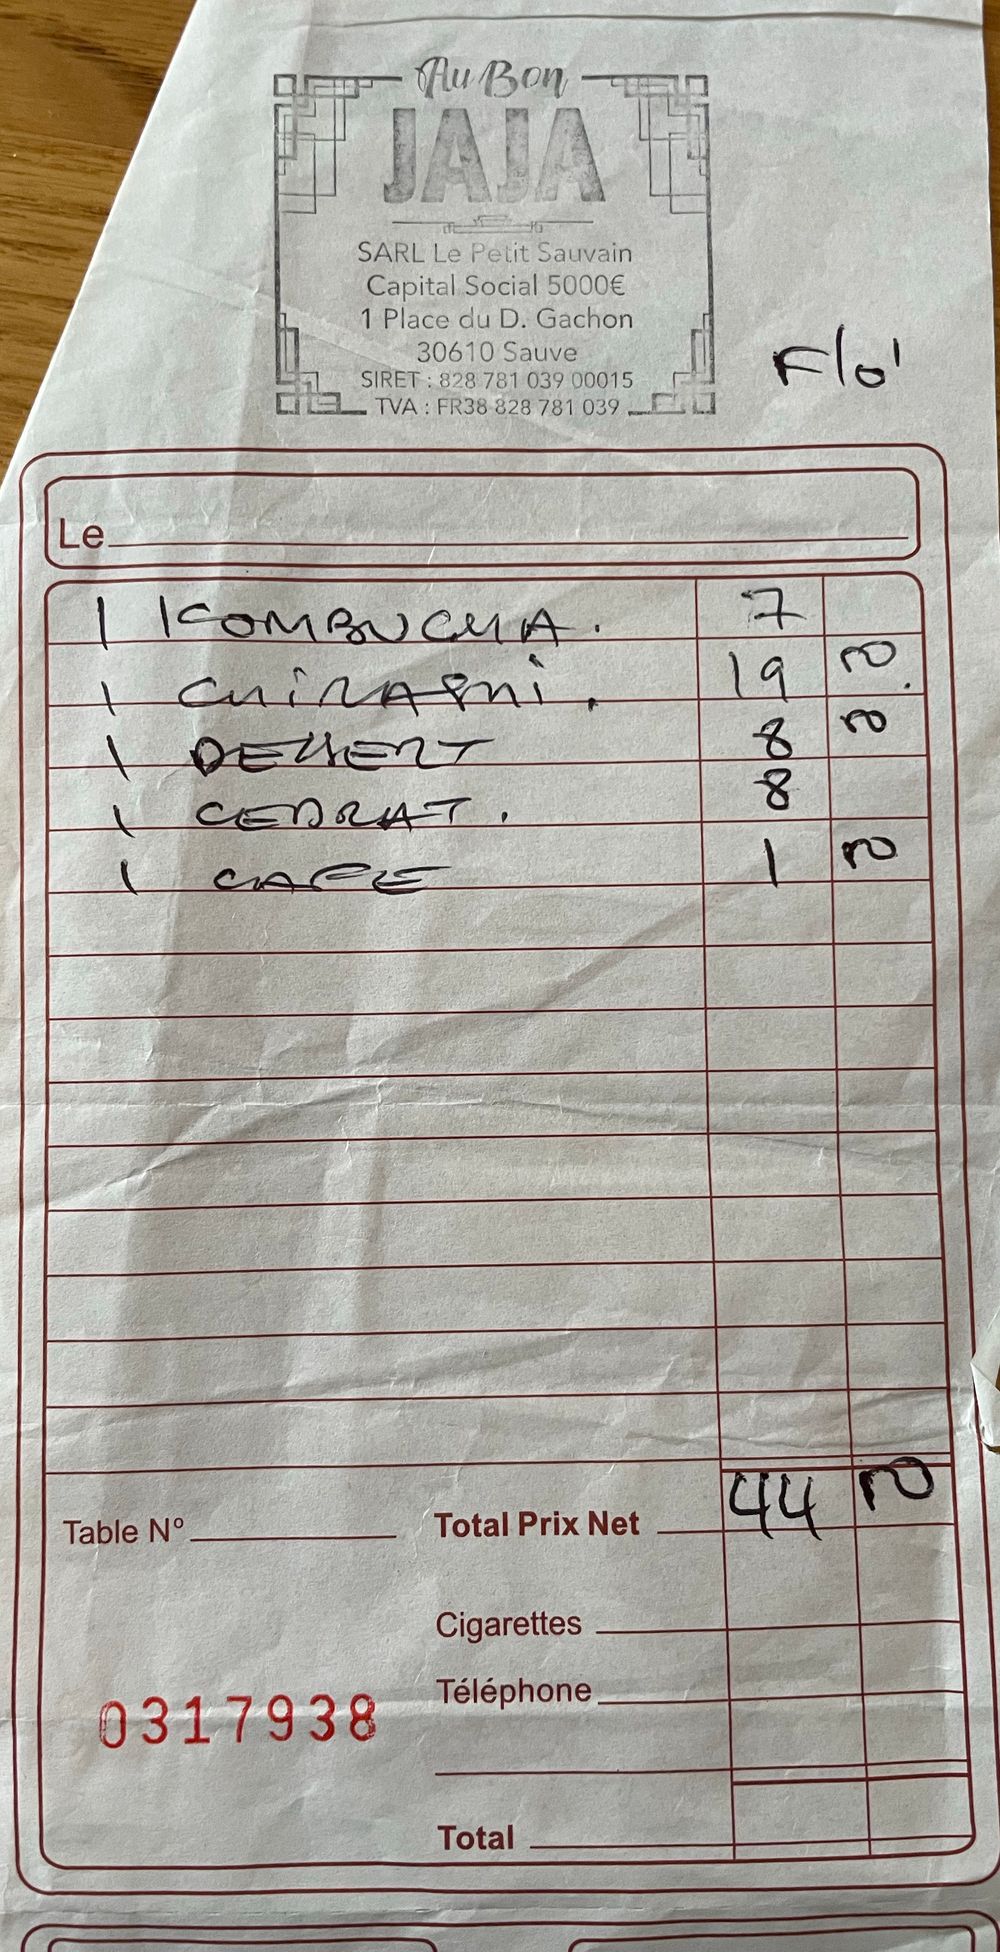 Au Bon
JAJA
SARL Le Petit Sauvain
Capital Social 5000€
1 Place du D. Gachon
30610 Sauve
SIRET : 828 781 039 00015
TVA : FR38 828 781 039
Flo'
Le
1 KOMBUCHA. 7
1 CHIRASHI. 19 50
1 DESSERT 8 50
1 CEDRAT. 8
1 CAFE 1 50
Table Nº Total Prix Net 44 50
Cigarettes
Téléphone
0317938
Total